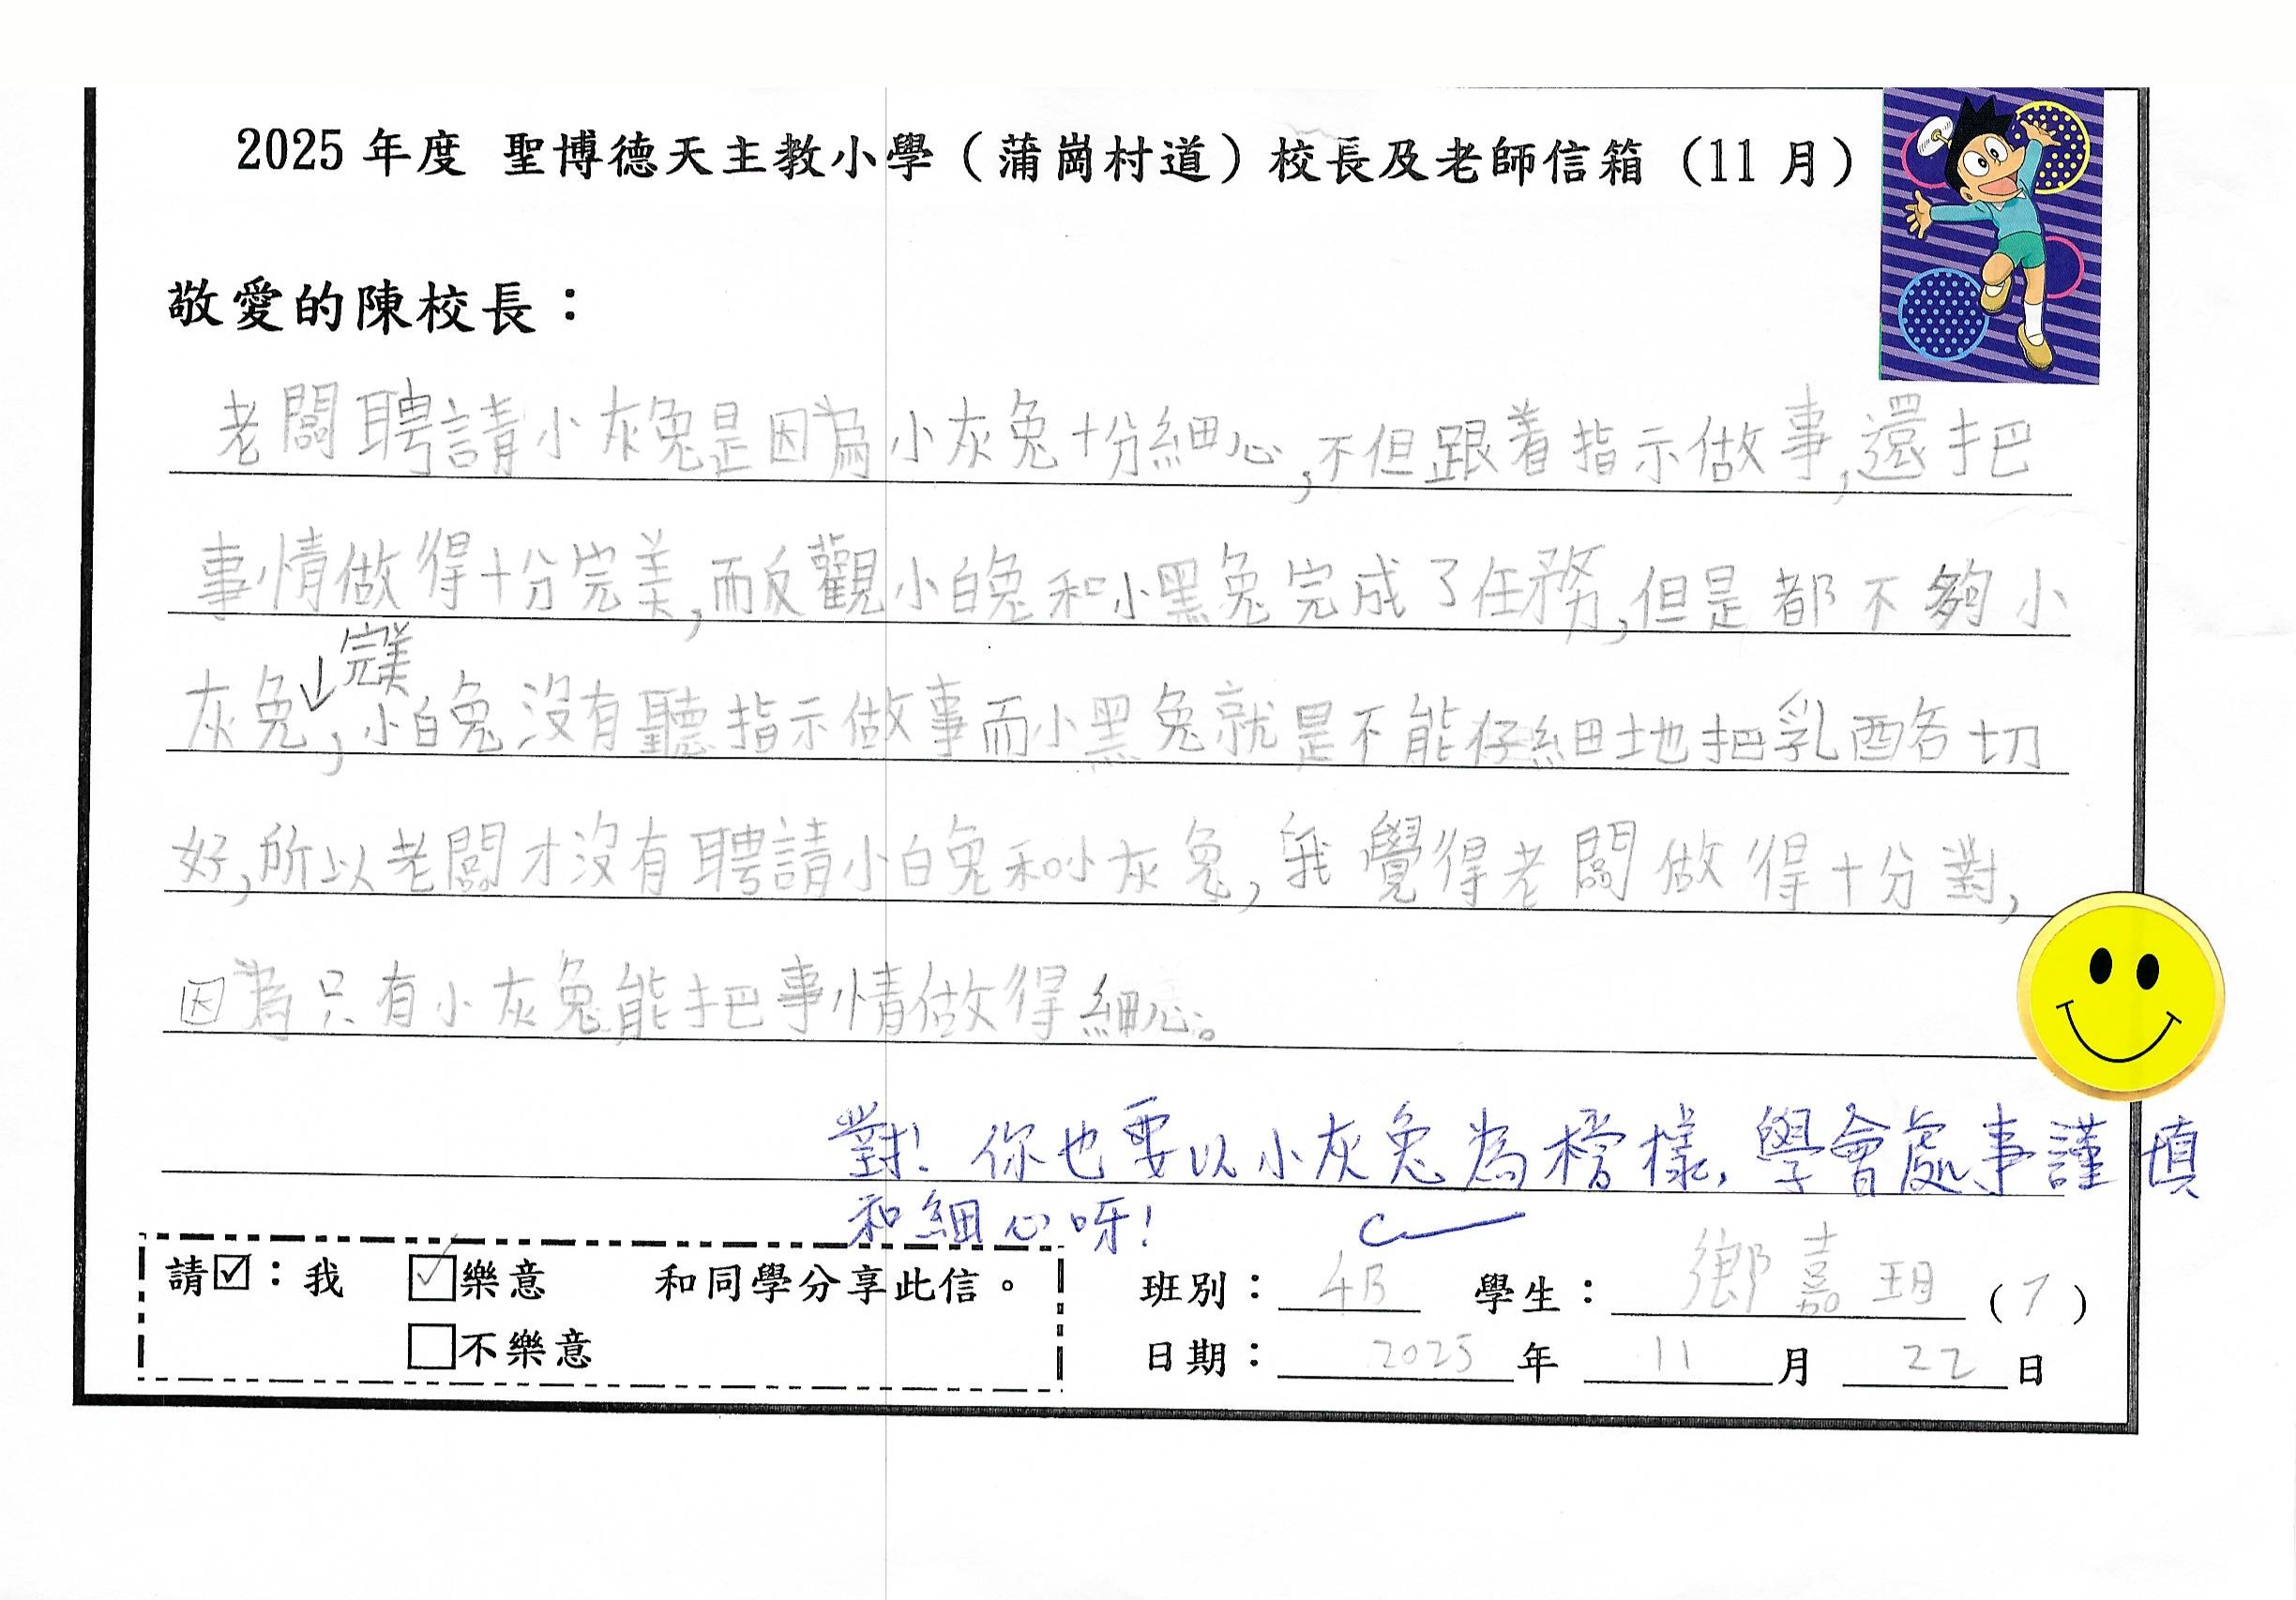 2025 年度 聖博德天主教小學（蒲崗村道）校長及老師信箱（11 月）
敬愛的陳校長：
老闆聘請小灰兔是因為小灰兔十分細心,不但跟着指示做事,還把
事情做得十分完美,而反觀小白兔和小黑兔完成了任務,但是都不夠小
完美
灰兔,小白兔沒有聽指示做事而小黑兔就是不能仔細地把乳酪切
好,所以老闆才沒有聘請小白兔和小灰兔,我覺得老闆做得十分對,
因為只有小灰兔能把事情做得細心。
對!你也要以小灰兔為榜樣,學會處事謹慎
和細心呀!
請☑：我 ☑樂意 和同學分享此信。
□不樂意
班別：4B 學生：鄉嘉玥 (7)
日期：2025 年 11 月 22 日